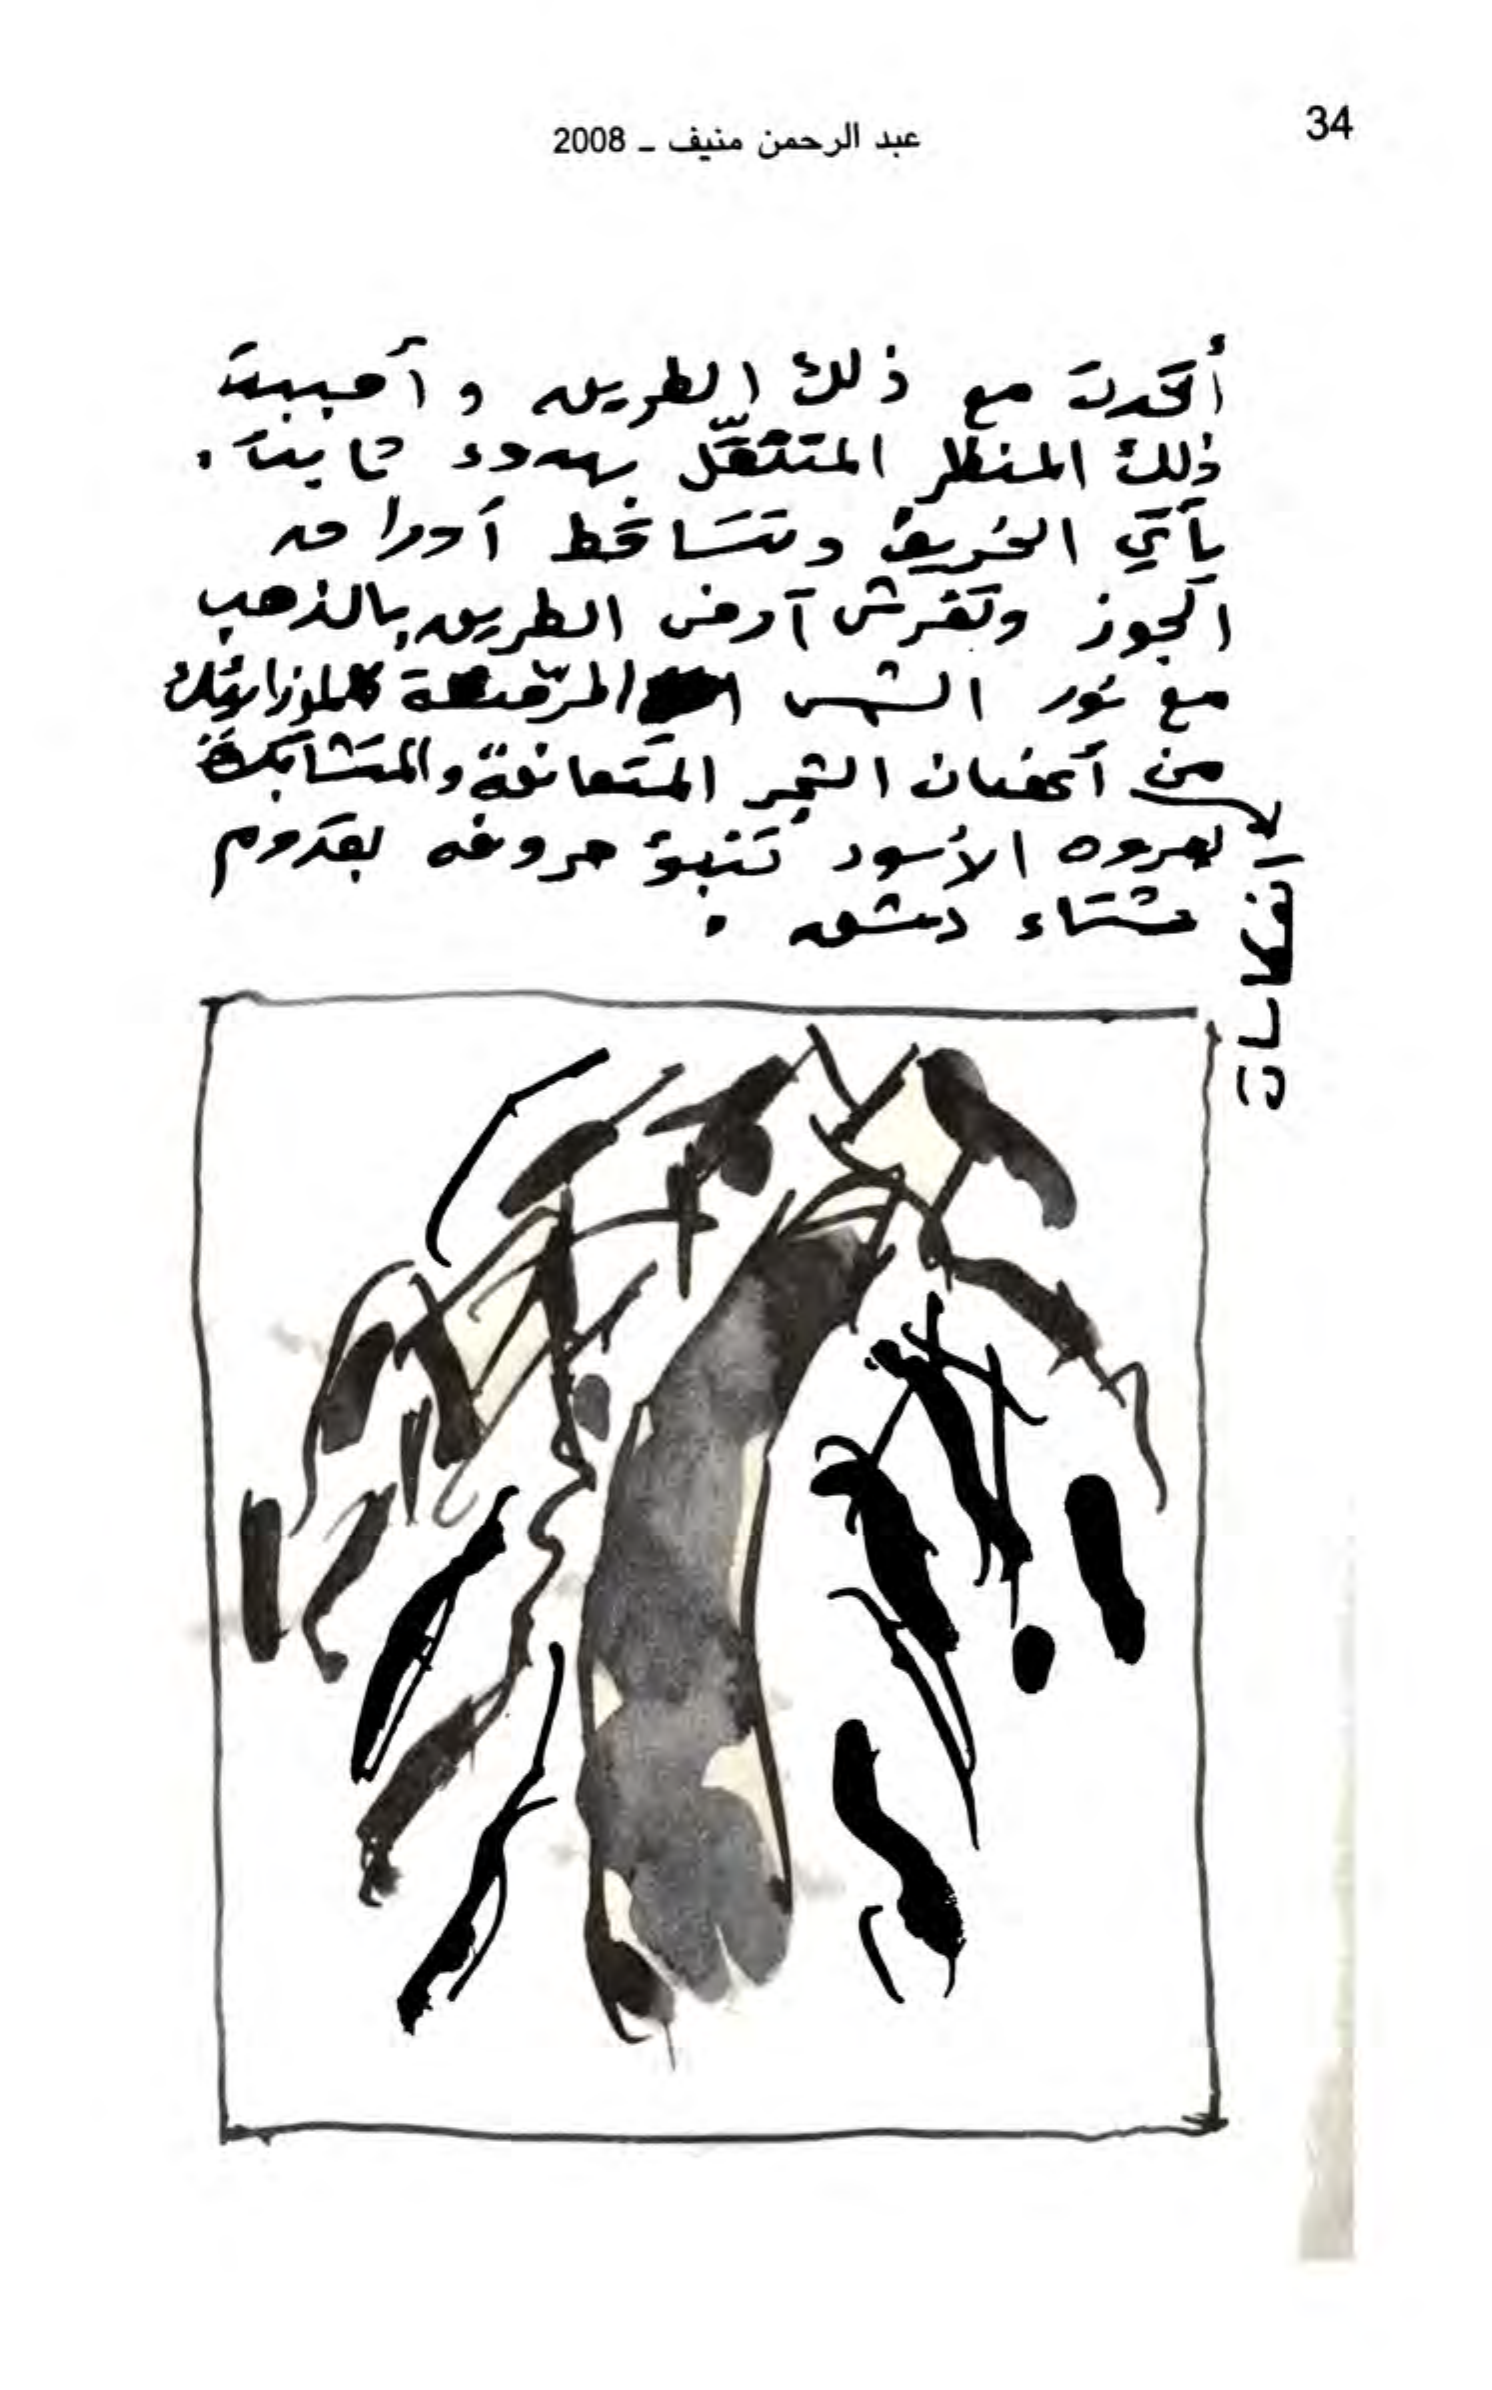 34
عبد الرحمن منيف ـ 2008
أتحدت مع ذلك الطريق وأحببت
ذلك المنظر المتنقّل بهدوء ثابت.
يأتي الخريف وتتساقط أوراق
الجوز وتفرش أرض الطريق بالذهب
مع نور الشمس كالموزاييك
من أغصان الشجر المتعانقة والمتشابكة
انعكاسات
الأسود تنبؤ حروفه بقدوم
شتاء دمشق.